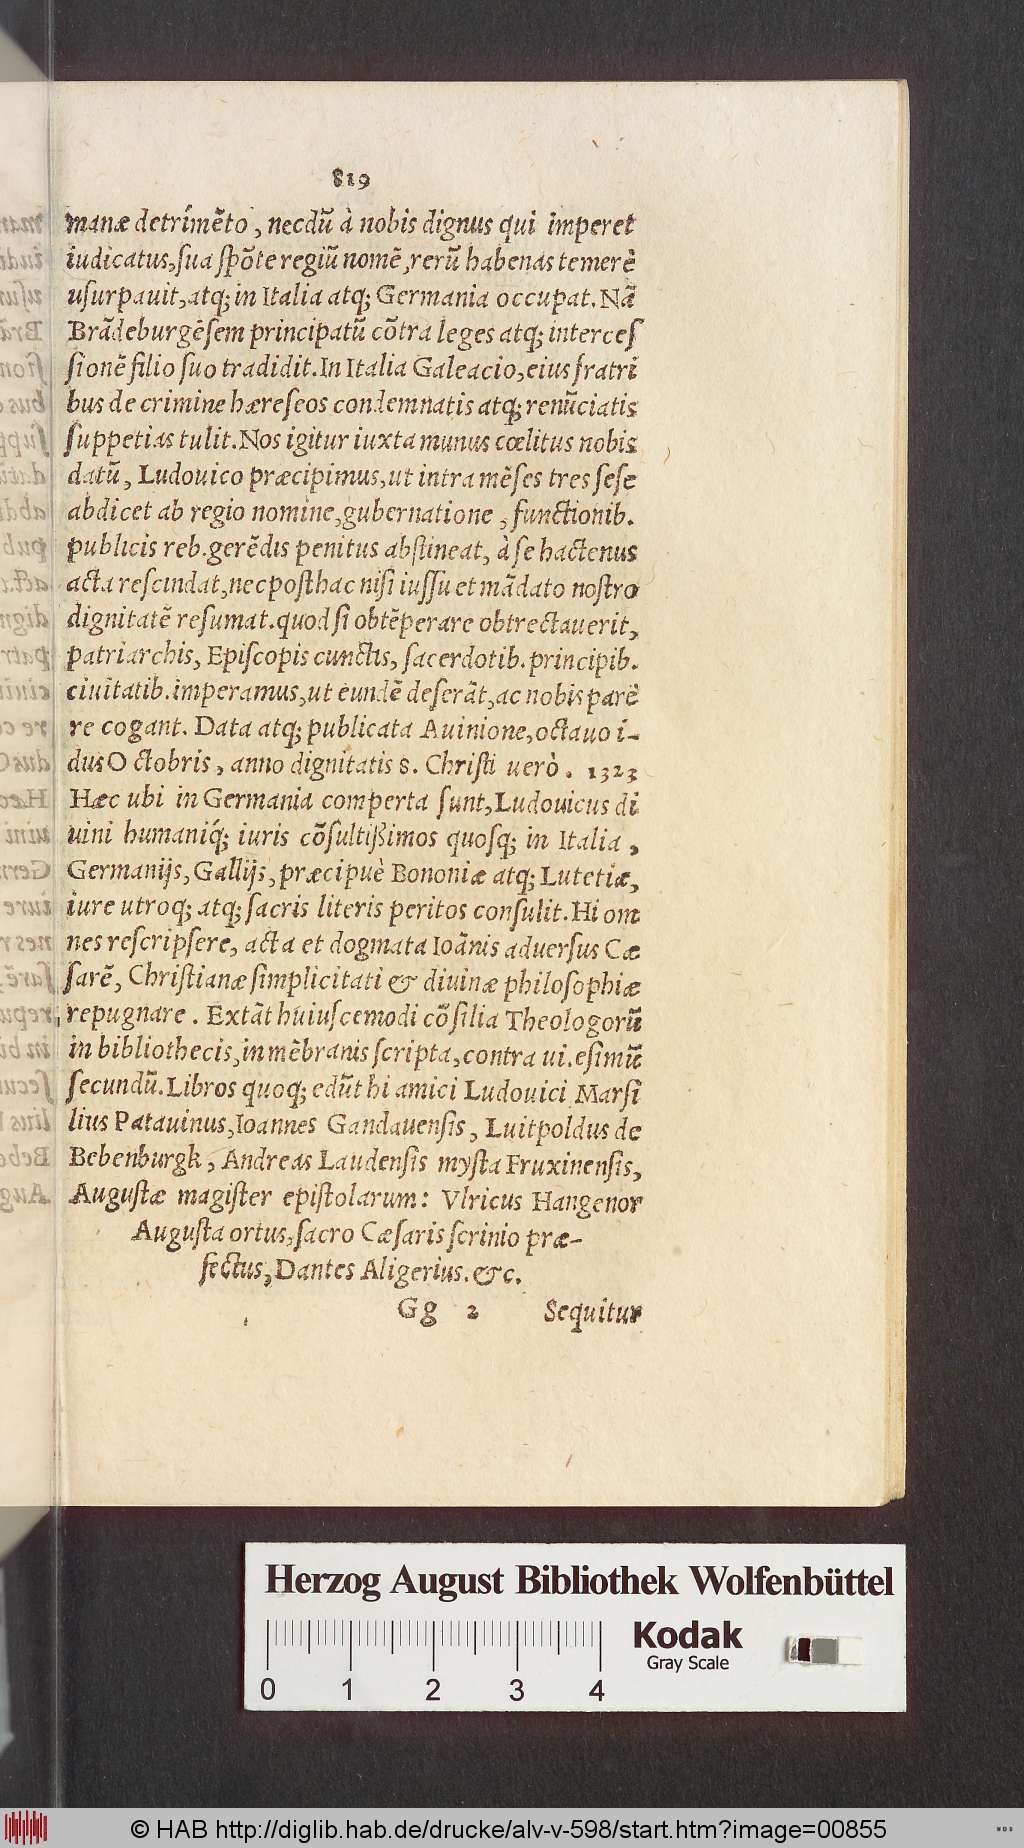 819
manæ detrimẽto, necdũ à nobis dignus qui imperet
iudicatus, sua spõte regiũ nomẽ, rerũ habenas temerè
usurpauit, atq; in Italia atq; Germania occupat. Nã
Brãdeburgẽsem principatũ cõtra leges atq; interces
sionẽ filio suo tradidit. In Italia Galeacio, eius fratri
bus de crimine hæreseos condemnatis atq; renũciatis
suppetias tulit. Nos igitur iuxta munus cœlitus nobis
datũ, Ludouico præcipimus, ut intra mẽses tres sese
abdicet ab regio nomine, gubernatione, functionib.
publicis reb. gerẽdis penitus abstineat, à se hactenus
acta rescindat, nec posthac nisi iussu et mãdato nostro
dignitatẽ resumat. quod si obtẽperare obtrectauerit,
patriarchis, Episcopis cunctis, sacerdotib. principib.
ciuitatib. imperamus, ut eundẽ deserãt, ac nobis parè
re cogant. Data atq; publicata Auinione, octauo i-
dus Octobris, anno dignitatis 8. Christi uerò. 1323
Hæc ubi in Germania comperta sunt, Ludouicus di
uini humaniq́; iuris cõsultißimos quosq; in Italia,
Germanijs, Gallijs, præcipuè Bononiæ atq; Lutetiæ,
iure utroq; atq; sacris literis peritos consulit. Hi om
nes rescripsere, acta et dogmata Ioãnis aduersus Cæ
sarẽ, Christianæ simplicitati & diuinæ philosophiæ
repugnare. Extãt huiuscemodi cõsilia Theologorũ
in bibliothecis, in mẽbranis scripta, contra ui. esimũ
secundũ. Libros quoq; edũt hi amici Ludouici Marsi
lius Patauinus, Ioannes Gandauensis, Luitpoldus de
Bebenburgk, Andreas Laudensis mysta Fruxinensis,
Augustæ magister epistolarum: Vlricus Hangenor
Augusta ortus, sacro Cæsaris scrinio præ-
fectus, Dantes Aligerius. &c.
Gg 2 Sequitur
Herzog August Bibliothek Wolfenbüttel
0 1 2 3 4
Kodak
Gray Scale
© HAB http://diglib.hab.de/drucke/alv-v-598/start.htm?image=00855